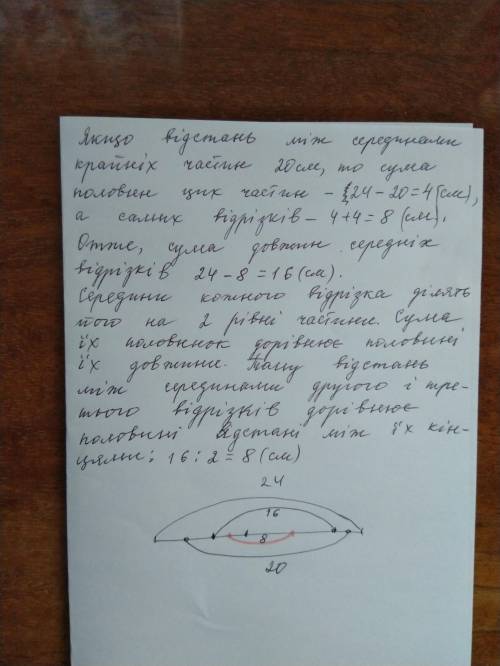 Якщо відстань між серединами
крайніх частин 20см, то сума
половин цих частин – 24 – 20 = 4 (см),
а самих відрізків – 4 + 4 = 8 (см).
Отже, сума довжин середніх
відрізків 24 – 8 = 16 (см).
Середини кожного відрізка ділять
його на 2 рівні частини. Сума
їх половинок дорівнює половині
їх довжини. Тому відстань
між серединами другого і тре-
тього відрізків дорівнює
половині відстані між їх кін-
цями: 16 : 2 = 8 (см)
24
16
8
20